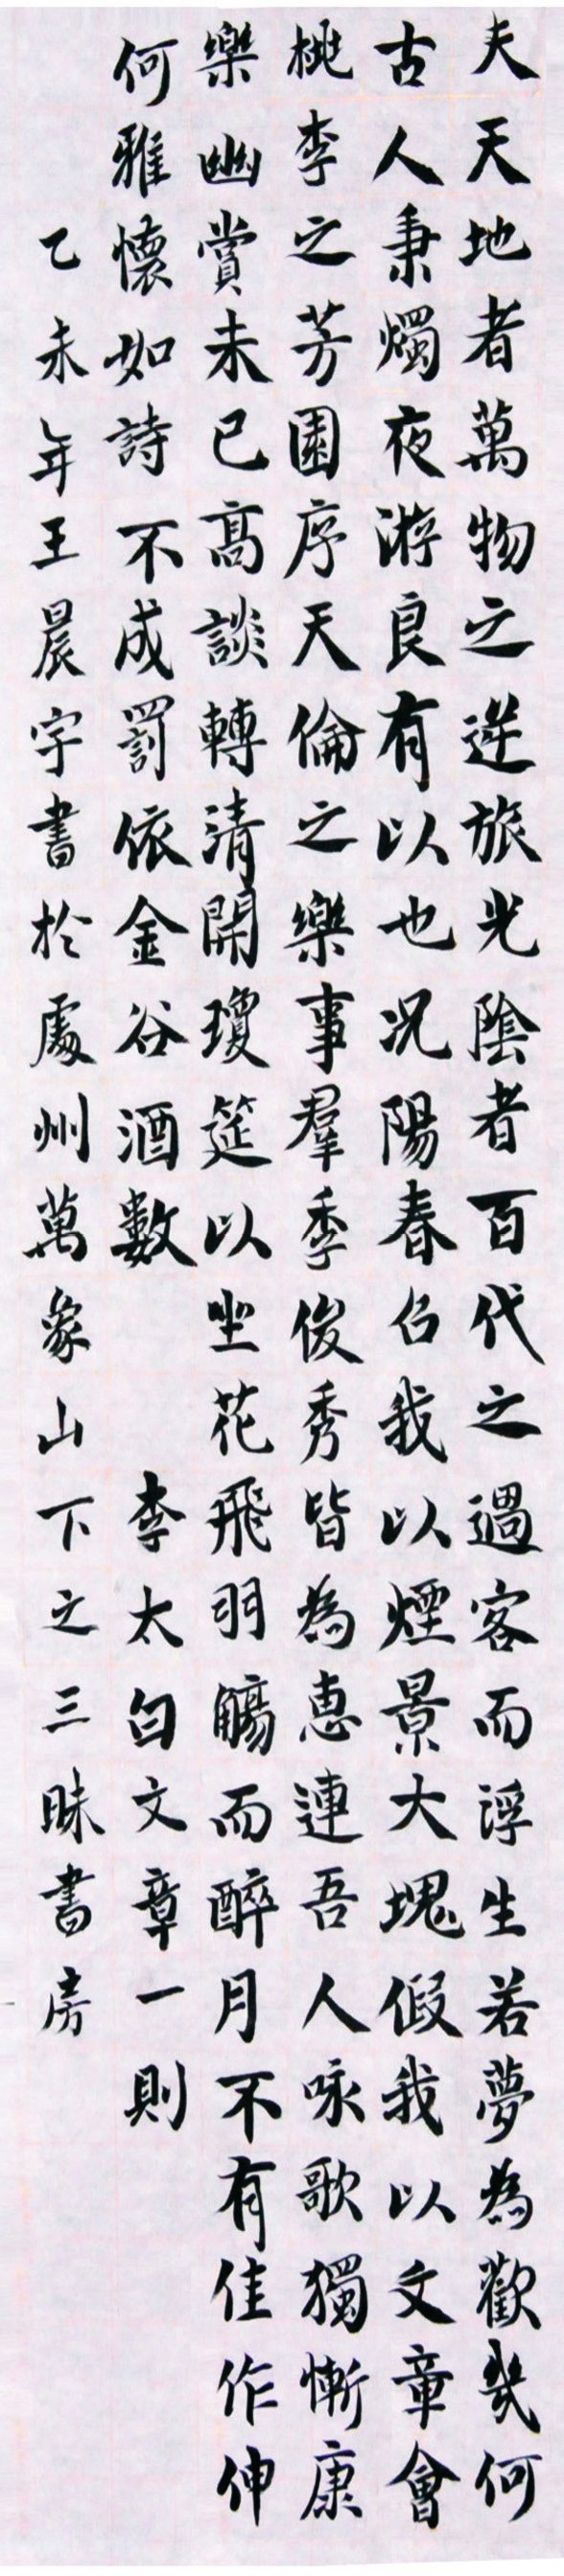 夫天地者萬物之逆旅光陰者百代之過客而浮生若夢為歡幾何
古人秉燭夜游良有以也况陽春召我以煙景大塊假我以文章會
桃李之芳園序天倫之樂事羣季俊秀皆為惠連吾人咏歌獨慚康
樂幽賞未已高談轉清開瓊筵以坐花飛羽觴而醉月不有佳作伸
何雅懷如詩不成罰依金谷酒數 李太白文章一則
乙未年王晨宇書於處州萬象山下之三昧書房